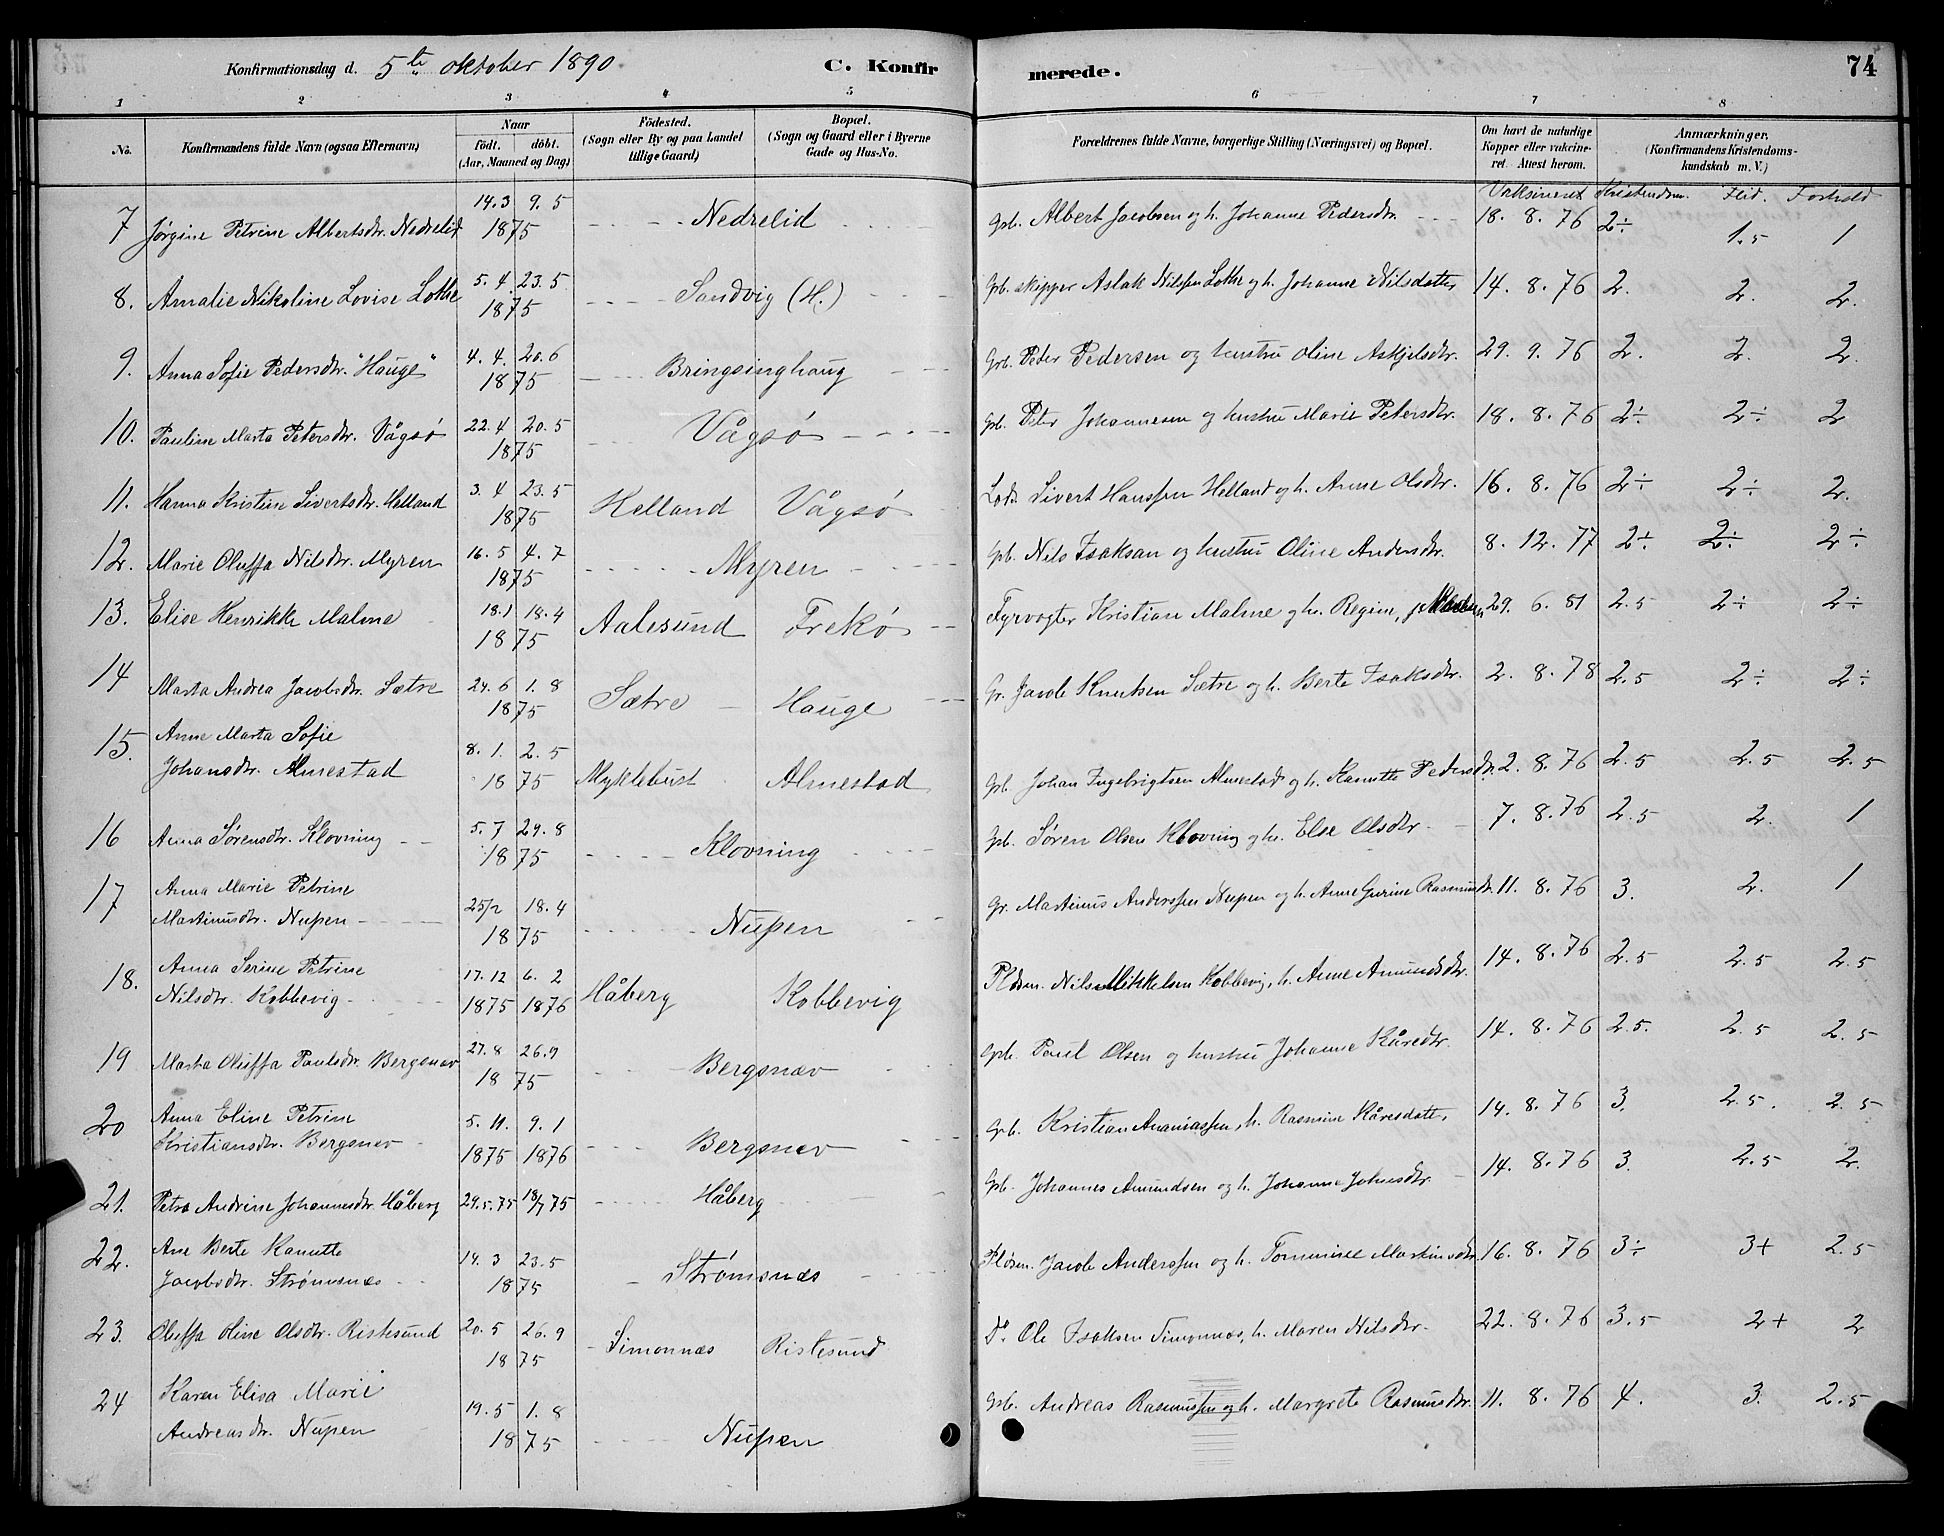 Konfirmationsdag d. 5te oktober 1890 C. Konfir merede. 74
1 2 3 4 5 6 7 8
No. Konfirmandens fulde Navn (ogsaa Efternavn) Naar født. døbt. (Aar, Maaned og Dag) Fødested. (Sogn eller By og paa Landet tillige Gaard) Bopæl. (Sogn og Gaard eller i Byerne Gade og Hus-No.) Forældrenes fulde Navne, borgerlige Stilling (Næringsvei) og Bopæl. Om havt de naturlige Kopper eller vakcineret. Attest herom. Anmærkninger, (Konfirmandens Kristendomskundskab m. V.)
Vaksineret Kristendom. Flid. Forhold
7 Jørgine Petrine Albertsdtr. Nedrelid 14.3 9.5 1875 Nedrelid Gpb. Albert Jacobsen og h. Johanne Pedersdtr. 18. 8. 76 2÷ 1.5 1
8. Amalie Nikoline Lovise Løkke 5.4 23.5 1875 Sandvig (H.) Gpb. skipper Aslak Nilssen Løkke og h. Johanne Nilsdatter 14. 8. 76 2. 2. 2.
9. Anna Sofie Pedersdtr. "Hauge" 4.4. 20.6 1875 Bringsinghaug Grb. Peder Pedersen og hustru Oline Askjelsdtr. 29. 9. 76 2. 2. 2.
10. Pauline Marta Petersdtr. Vågsø 22.4 20.5 1875 Vågsø Gpb. Peter Johannesen og hustru Marie Petersdtr. 18. 8. 76 2÷ 2÷ 2
11. Hanna Kristine Sivertsdtr. Helland 3.4 23.5 1875 Helland Vågsø Lods Sivert Hanssen Helland og h. Anne Olsdtr. 16. 8. 76 2÷ 2÷ 2.
12. Marie Oluffa Nilsdtr. Myren 16.5 4.7 1875 Myren Gpb. Nils Isaksan og hustru Oline Andersdtr. 8. 12. 77 2÷ 2÷ 2÷
13. Elise Henrikke Malme 18.1 18.4 1875 Aalesund Frekø Fyrvogter Kristian Malme og h. Regine, f. 29. 6. 81 2.5 2÷ 2÷
14 Marta Andrea Jacobsdtr. Sætre 24.6 1.8 1875 Sætre Hauge Gr. Jacob Knutsen Sætre og h. Berte Isaksdtr. 2. 8. 78 2.5 2÷ 2÷
15. Anne Marta Sofie
Johansdtr. Almestad 8.1. 2.5 1875 Myklebust Almestad Gpb. Johan Ingebrigtsen Almestad og h. Kanutte Pedersdtr. 2. 8. 76 2.5 2.5 2.5
16 Anna Sørensdtr. Klovning 5.7 29.8 1875 Klovning Gpb. Søren Olsen Klovning og h. Else Olsdtr. 7. 8. 76 2.5 2. 1
17 Anna Marie Petrine
Martinusdtr. Nupen 25/2 18.4 1875 Nupen Gr. Martinus Anderssen Nupen og h. Anne Gurine Rasmusdtr. 11. 8. 76 3. 2. 1
18. Anna Serine Petrine
Nilsdtr. Kobbevig 17.12 6.2 1875 1876 Håberg Kobbevig Pldsm. Nils Mikkelsen Kobbevig, h. Anne Amundsdtr. 14. 8. 76 2.5 2.5 2.5
19 Marta Oluffa Paulsdtr. Bergsnæv 27.8 26.9 1875 Bergsnæv Gpb. Paul Olsen og hustru Johanne Kåredtr. 14. 8. 76 2.5. 2.5 2.5
20 Anna Eline Petrine
Kristiansdtr. Bergsnev 5.11. 9.1 1875 1876 Bergsnev Gpb. Kristian Ananiassen, h. Rasmine Kåresdatter 14. 8. 76 3. 2.5. 2.5
21. Petra Andrine Johannesdtr. Håberg 29.5.75 18/7 75 Håberg Gpb. Johannes Amundsen og h. Johanne Johnsdtr. 14. 8. 76 3. 2.5 2.
22. Ane Berte Kanutte
Jacobsdtr. Strømsnæs 14.3 23.5 1875 Strømsnæs Pldsm. Jacob Anderssen og h. Tomine Martinusdtr. 16. 8. 76 3÷ 3+ 2.5
23. Oluffa Oline Olsdtr. Ristesund 20.5 26.9 1875 Simonnæs Ristesund Do. Ole Isaksen Simonnæs, h. Maren Nilsdtr. 22. 8. 76 3.5 2+ 2
24 Karen Elisa Marie
Andreasdtr. Nupen 19.5 1.8 1875 Nupen Gpb. Andreas Rasmussen og h. Margrete Rasmusdtr. 11. 8. 76 4. 3. 2.5